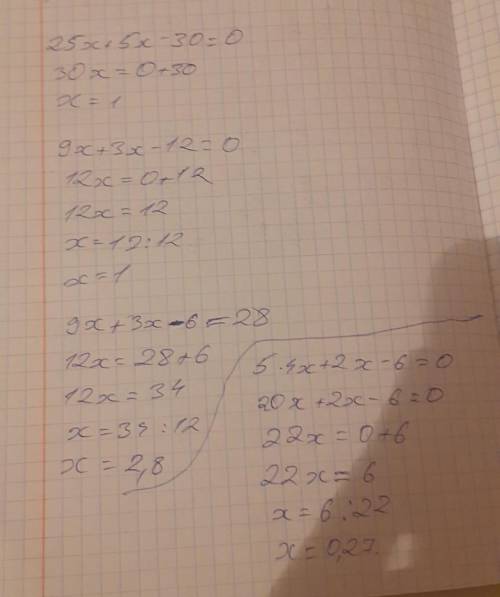 25x+5x-30=0
30x=0+30
x=1
9x+3x-12=0
12x=0+12
12x=12
x=12:12
x=1
9x+3x-6=28
12x=28+6
12x=34
x=34:12
x=2,8
5·4x+2x-6=0
20x+2x-6=0
22x=0+6
22x=6
x=6:22
x=0,27.